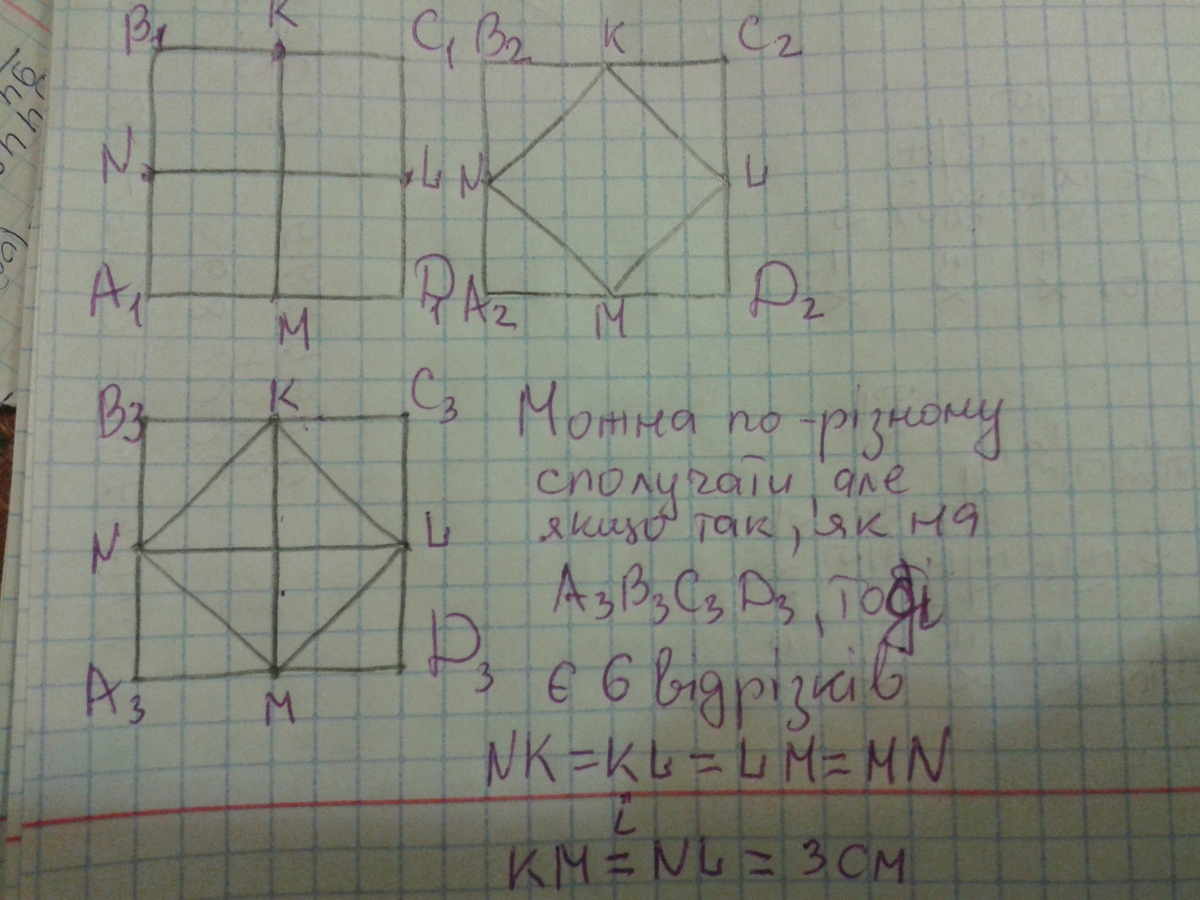 B1 K C1 B2 K C2
N L N L
A1 M D1 A2 M D2
B3 K C3
Можна по-різному
сполучати, але
якщо так, як на
N L
A3B3C3D3, тоді
A3 M D3
є 6 відрізків
NK=KL=LM=MN
і
KM=NL=3см